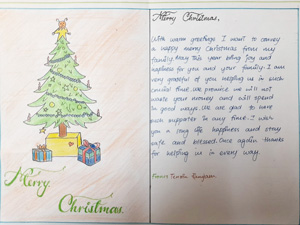 Merry
Christmas.
Merry Christmas.
With warm greetings I want to convey
a happy merry Christmas from my
family. May this year bring joy and
happiness for you and your family. I am
very grateful of you helping us in such
crucial time. We promise we will not
waste your money and will spend
in good ways. We are glad to have
such supporter in any time. I wish
you a long life happiness and stay
safe and blessed. Once again thanks
for helping us in every way.
From: Tenzin